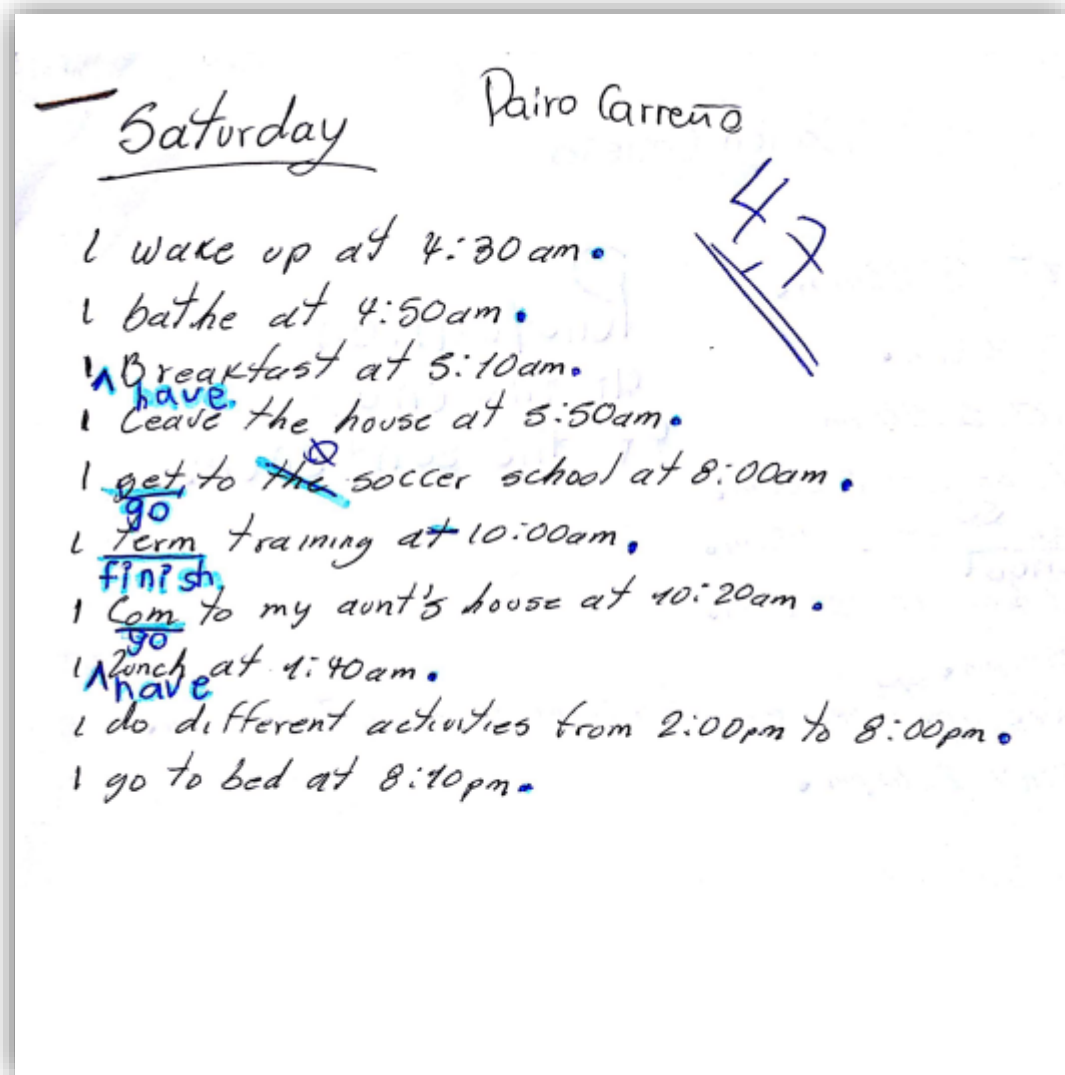 Saturday
Dairo Carreño
4,7
I wake up at 4:30 am.
I bathe at 4:50am.
I ^ Breakfast at 5:10am.
have
I Leave the house at 5:50am.
I get to the soccer school at 8:00am.
go
I Term training at 10:00am.
finish
I Com to my aunt's house at 10:20am.
go
I ^ Lunch at 1:40am.
have
I do different activities from 2:00pm to 8:00pm.
I go to bed at 8:10pm.